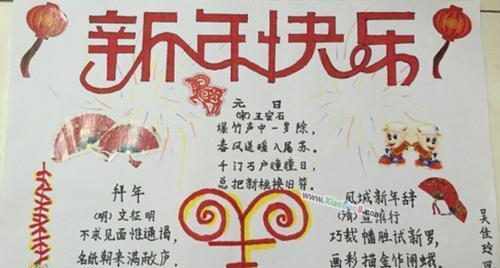 新年快乐
元日
(宋)王安石
爆竹声中一岁除,
春风送暖入屠苏。
千门万户曈曈日,
总把新桃换旧符。
拜年
(明)文征明
不求见面惟通谒,
名纸朝来满敝庐。
凤城新年辞
(清)查慎行
巧裁幡胜试新罗,
画彩描金作闹蛾。
吴佳玲
www.Xiao